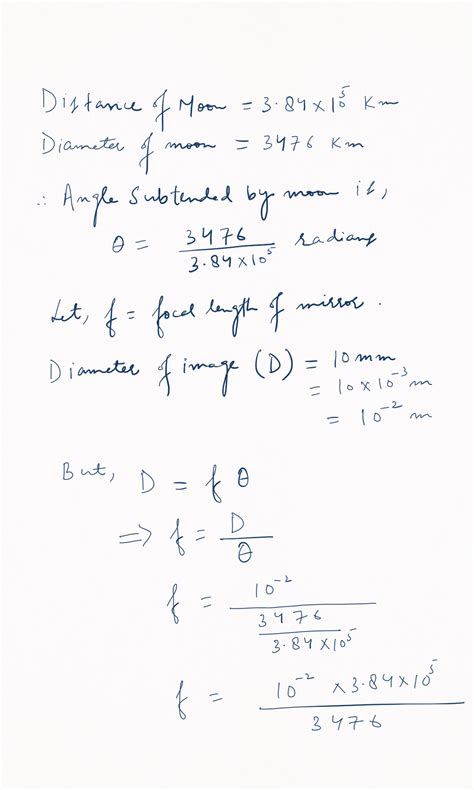 Distance of Moon = 3.84 × 10⁵ Km
Diameter of moon = 3476 Km
∴ Angle Subtended by moon is,
θ = 3476 / 3.84×10⁵ radians
Let, f = focal length of mirror.
Diameter of image (D) = 10 mm
= 10 × 10⁻³ m
= 10⁻² m
But, D = f θ
⇒ f = D / θ
f = 10⁻² / (3476 / 3.84×10⁵)
f = 10⁻² × 3.84×10⁵ / 3476